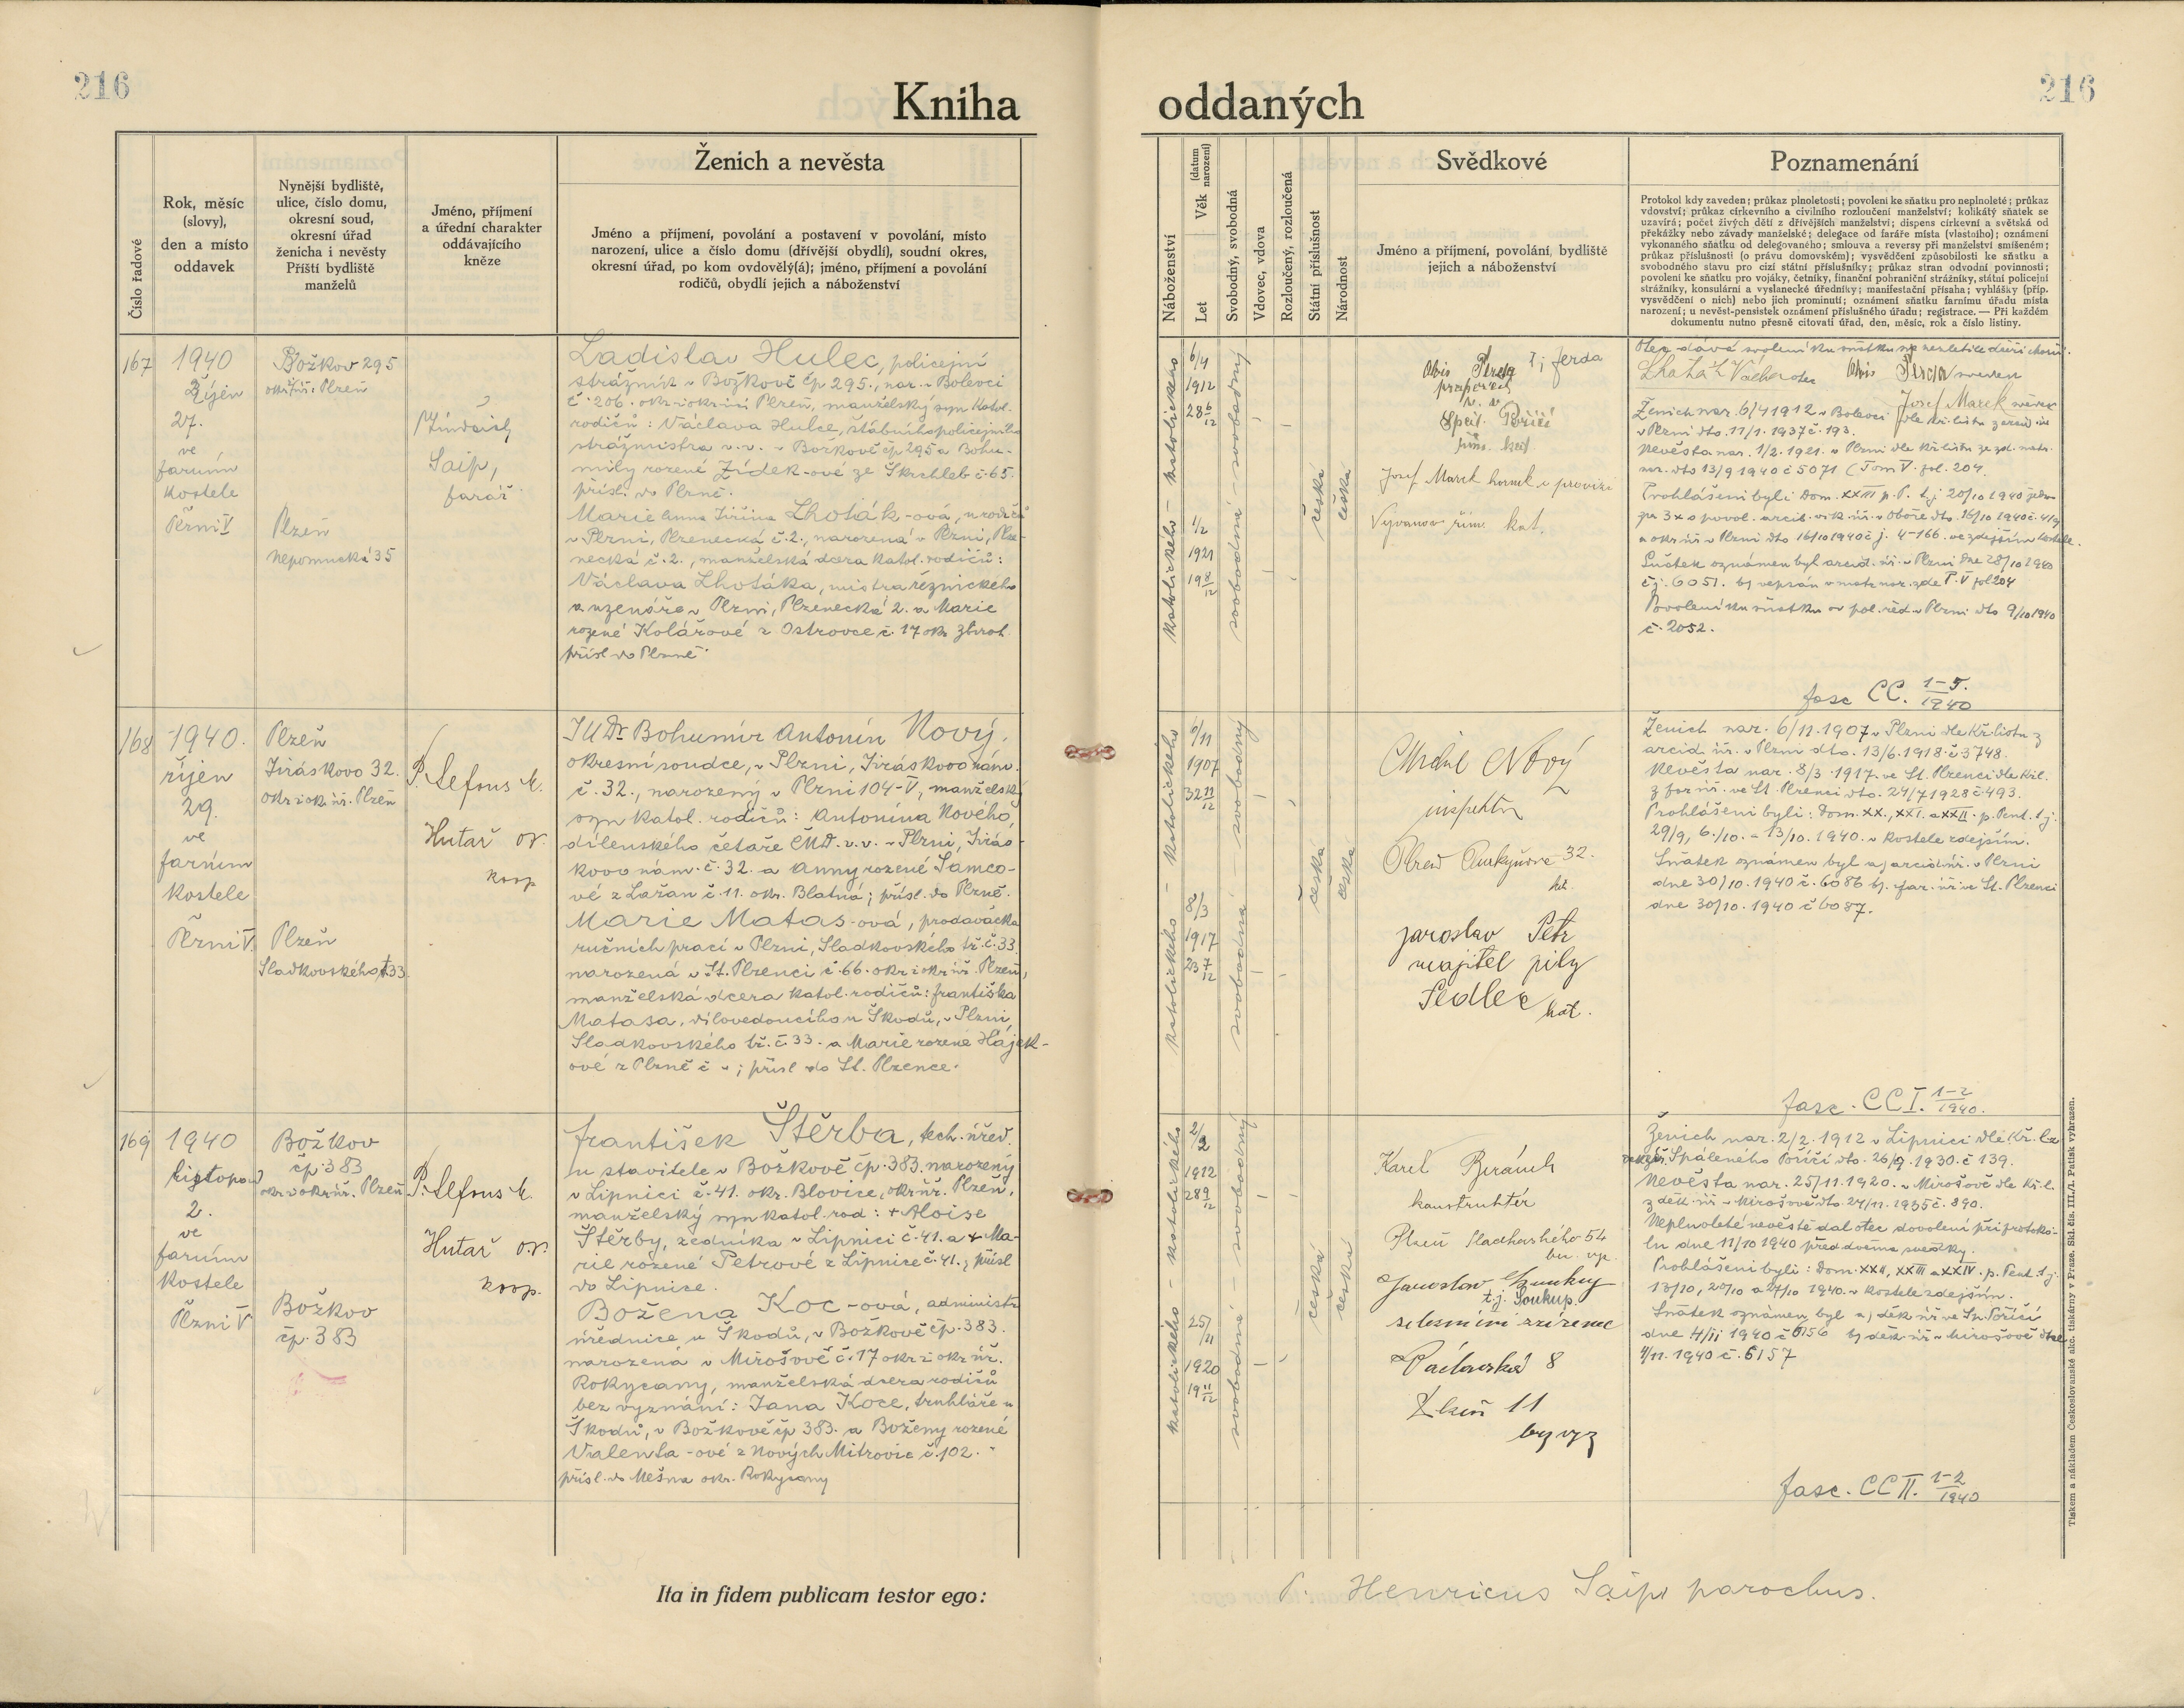 216
216
Kniha oddaných
Číslo řadové
Rok, měsíc
(slovy),
den a místo
oddavek
Nynější bydliště,
ulice, číslo domu,
okresní soud,
okresní úřad
ženicha i nevěsty
Příští bydliště
manželů
Jméno, příjmení
a úřední charakter
oddávajícího
kněze
Ženich a nevěsta
Jméno a příjmení, povolání a postavení v povolání, místo
narození, ulice a číslo domu (dřívější obydlí), soudní okres,
okresní úřad, po kom ovdovělý(á); jméno, příjmení a povolání
rodičů, obydlí jejich a náboženství
Náboženství
Věk (datum narození)
Let
Svobodný, svobodná
Vdovec, vdova
Rozloučený, rozloučená
Státní příslušnost
Národnost
Svědkové
Jméno a příjmení, povolání, bydliště
jejich a náboženství
Poznamenání
Protokol kdy zaveden; průkaz plnoletosti; povolení ke sňatku pro neplnoleté; průkaz
vdovství; průkaz církevního a civilního rozloučení manželství; kolikátý sňatek se
uzavírá; počet živých dětí z dřívějších manželství; dispens církevní a světská od
překážky nebo závady manželské; delegace od faráře místa (vlastního); oznámení
vykonaného sňatku od delegovaného; smlouva a reversy při manželství smíšeném;
průkaz příslušnosti (o právu domovském); vysvědčení způsobilosti ke sňatku a
svobodného stavu pro cizí státní příslušníky; průkaz stran odvodní povinnosti;
povolení ke sňatku pro vojáky, četníky, finanční pohraniční strážníky, státní policejní
strážníky, konsulární a vyslanecké úředníky; manifestační přísaha; vyhlášky (příp.
vysvědčení o nich) nebo jich prominutí; oznámení sňatku farnímu úřadu místa
narození; u nevěst-pensistek oznámení příslušného úřadu; registrace. — Při každém
dokumentu nutno přesně citovati úřad, den, měsíc, rok a číslo listiny.
167
1940
Říjen
27.
ve
farním
kostele
Plzni V
Božkov 295
okr. i úř. Plzeň
Plzeň
Nepomucká 35
Jindřich
Šaip,
farář
Ladislav Hulec, policejní
strážník v Božkově čp 295., nar. v Bolevci
č. 206. okr. i okr. úř. Plzeň, manželský syn katol.
rodičů: Václava Hulce, štábního policejního
strážmistra v. v. v Božkově čp 295 a Bohu-
mily rozené Zídek-ové ze Škrchleb č. 65.
přísl. do Plzně.
Marie Anna Jiřina Lhoták-ová, u rodičů
v Plzni, Plzenecká č. 2., narozená v Plzni, Plze-
necká č. 2., manželská dcera katol. rodičů:
Václava Lhotáka, mistra řeznického
a uzenáře v Plzni, Plzenecká 2. a Marie
rozené Kolářové z Ostrovce č. 17 okr. Zbiroh.
přísl do Plzně.
katolického - katolického
6/4
1912
28 6/12
1/2
1921
19 8/12
svobodná - svobodný
česká
česká
Josef Marek horník v provisi
Vejvanov řím. kat.
Lhoták Václav otec
Josef Marek svědek
Ženich nar. 6/4 1912 v Bolevci dle kř. listu z arcid. úř.
v Plzni dto. 11/1. 1937 č. 193.
Nevěsta nar. 1/2. 1921. v Plzni dle kř. listu ze zd. matr.
nar. dto 13/9 1940 č 5071 (Tom V. fol. 204.
Sňatek oznámen byl arcid. úř. v Plzni dne 28/10 1940
č j. 6051. b) vepsán v matr. nar. zde T. V fol 204
Povolení ku sňatku od pol. řed. v Plzni dto 9/10 1940
č. 2052.
fasc CC. 1-5./1940
168
1940.
říjen
29.
ve
farním
kostele
Plzni V.
Plzeň
Jiráskovo 32.
okr i ok. úř. Plzeň
Plzeň
Sladkovského t 33.
P. Alfons M.
Hutař O.P.
koop
JUDr Bohumír Antonín Nový,
okresní soudce, v Plzni, Jiráskovo nám.
č. 32., narozený v Plzni 104-V, manželský
syn katol. rodičů: Antonína Nového,
dílenského četaře ČMD. v. v. v Plzni, Jirás-
kovo nám. č. 32. a Anny rozené Samco-
vé z Lažan č. 11. okr. Blatná; přísl. do Plzně.
Marie Matas-ová, prodavačka
ručních prací v Plzni, Sladkovského tř. č. 33.
narozená v St. Plzenci č. 66. okr i okr úř. Plzeň,
manželská dcera katol. rodičů: Františka
Matasa, dílovedoucího u Škodů, v Plzni
Sladkovského tř. č. 33. a Marie rozené Hájek-
ové z Plzně č -; přísl do St. Plzence.
katolického - katolického
6/11
1907
32 11/12
8/3
1917
23 7/12
svobodná - svobodný
česká
česká
Nový
inspektor
Purkyňova 32.
kat.
Jaroslav Petr
majitel pily
Sedlec kat.
Ženich nar. 6/11. 1907 v Plzni dle kř. listu z
arcid. úř. v Plzni dto. 13/6. 1918. č 3748.
Nevěsta nar. 8/3. 1917. ve St. Plzenci dle kř. l.
z far. úř. ve St. Plzenci dto. 24/7 1928 č. 493.
Prohlášeni byli: Dom. XX., XXI. a XXII. p. Pent. t. j.
29/9, 6./10. a 13/10. 1940. v kostele zdejším.
Sňatek oznámen byl a) arcid. úř. v Plzni
dne 30/10. 1940 č. 6086 b). far. úř ve St. Plzenci
dne 30/10. 1940 č 6087.
fasc. CCI. 1-2/1940.
169
1940
listopad
2.
ve
farním
kostele
Plzni V
Božkov
čp. 383
okr. i okr. úř. Plzeň
Božkov
čp. 383
P. Alfons M.
Hutař O.P.
koop.
František Štěrba, tech. úřed.
u stavitele v Božkově čp. 383. narozený
v Lipnici č. 41. okr. Blovice, okr. úř. Plzeň,
manželský syn katol. rod: + Aloise
Štěrby, zedníka v Lipnici č. 41. a + Ma-
rie rozené Petrové z Lipnice č. 41.; přísl
do Lipnice.
Božena Koc-ová, administr.
úřednice u Škodů, v Božkově čp. 383.
narozená v Mirošově č. 17 okr i okr úř.
Rokycany, manželská dcera rodičů
bez vyznání: Jana Koce, truhláře u
Škodů, v Božkově čp 383. a Boženy rozené
Valenta-ové z Nových Mitrovic č. 102.
přísl. do Mešna okr. Rokycany
katolického - katolického
2/2
1912
28 9/12
25/11
1920
19 11/12
svobodná - svobodný
česká
česká
Karel Beránek
konstruktér
Plzeň Sladkovského 54
Jaroslav
t. j. Soukup.
zřízenec
Plzeň 11
bez vyz
Ženich nar. 2/2. 1912 v Lipnici dle kř. l. z
Spáleného Poříčí dto. 26/9. 1930. č 139.
Nevěsta nar. 25/11. 1920. v Mirošově dle kř. l.
z děk. úř. v Mirošově dto. 24/11. 1935 č. 890.
Neplnoleté nevěstě dal otec dovolení při protoko-
lu dne 11/10 1940 před dvěma svědky.
Prohlášeni byli: Dom. XXII, XXIII a XXIV. p. Pent. t. j.
13/10, 20/10 a 27/10 1940. v kostele zdejším.
Sňatek oznámen byl a) děk. úř ve Sp. Poříčí
dne 4/11 1940 č 6156 b) děk. úř v Mirošově dne
4/11. 1940 č. 6157
fasc. CCII. 1-2/1940
Ita in fidem publicam testor ego:
P. Henricus Šaip, parochus.
Tiskem a nákladem Československé akc. tiskárny v Praze. Skl. čís. III./1. Patisk vyhrazen.